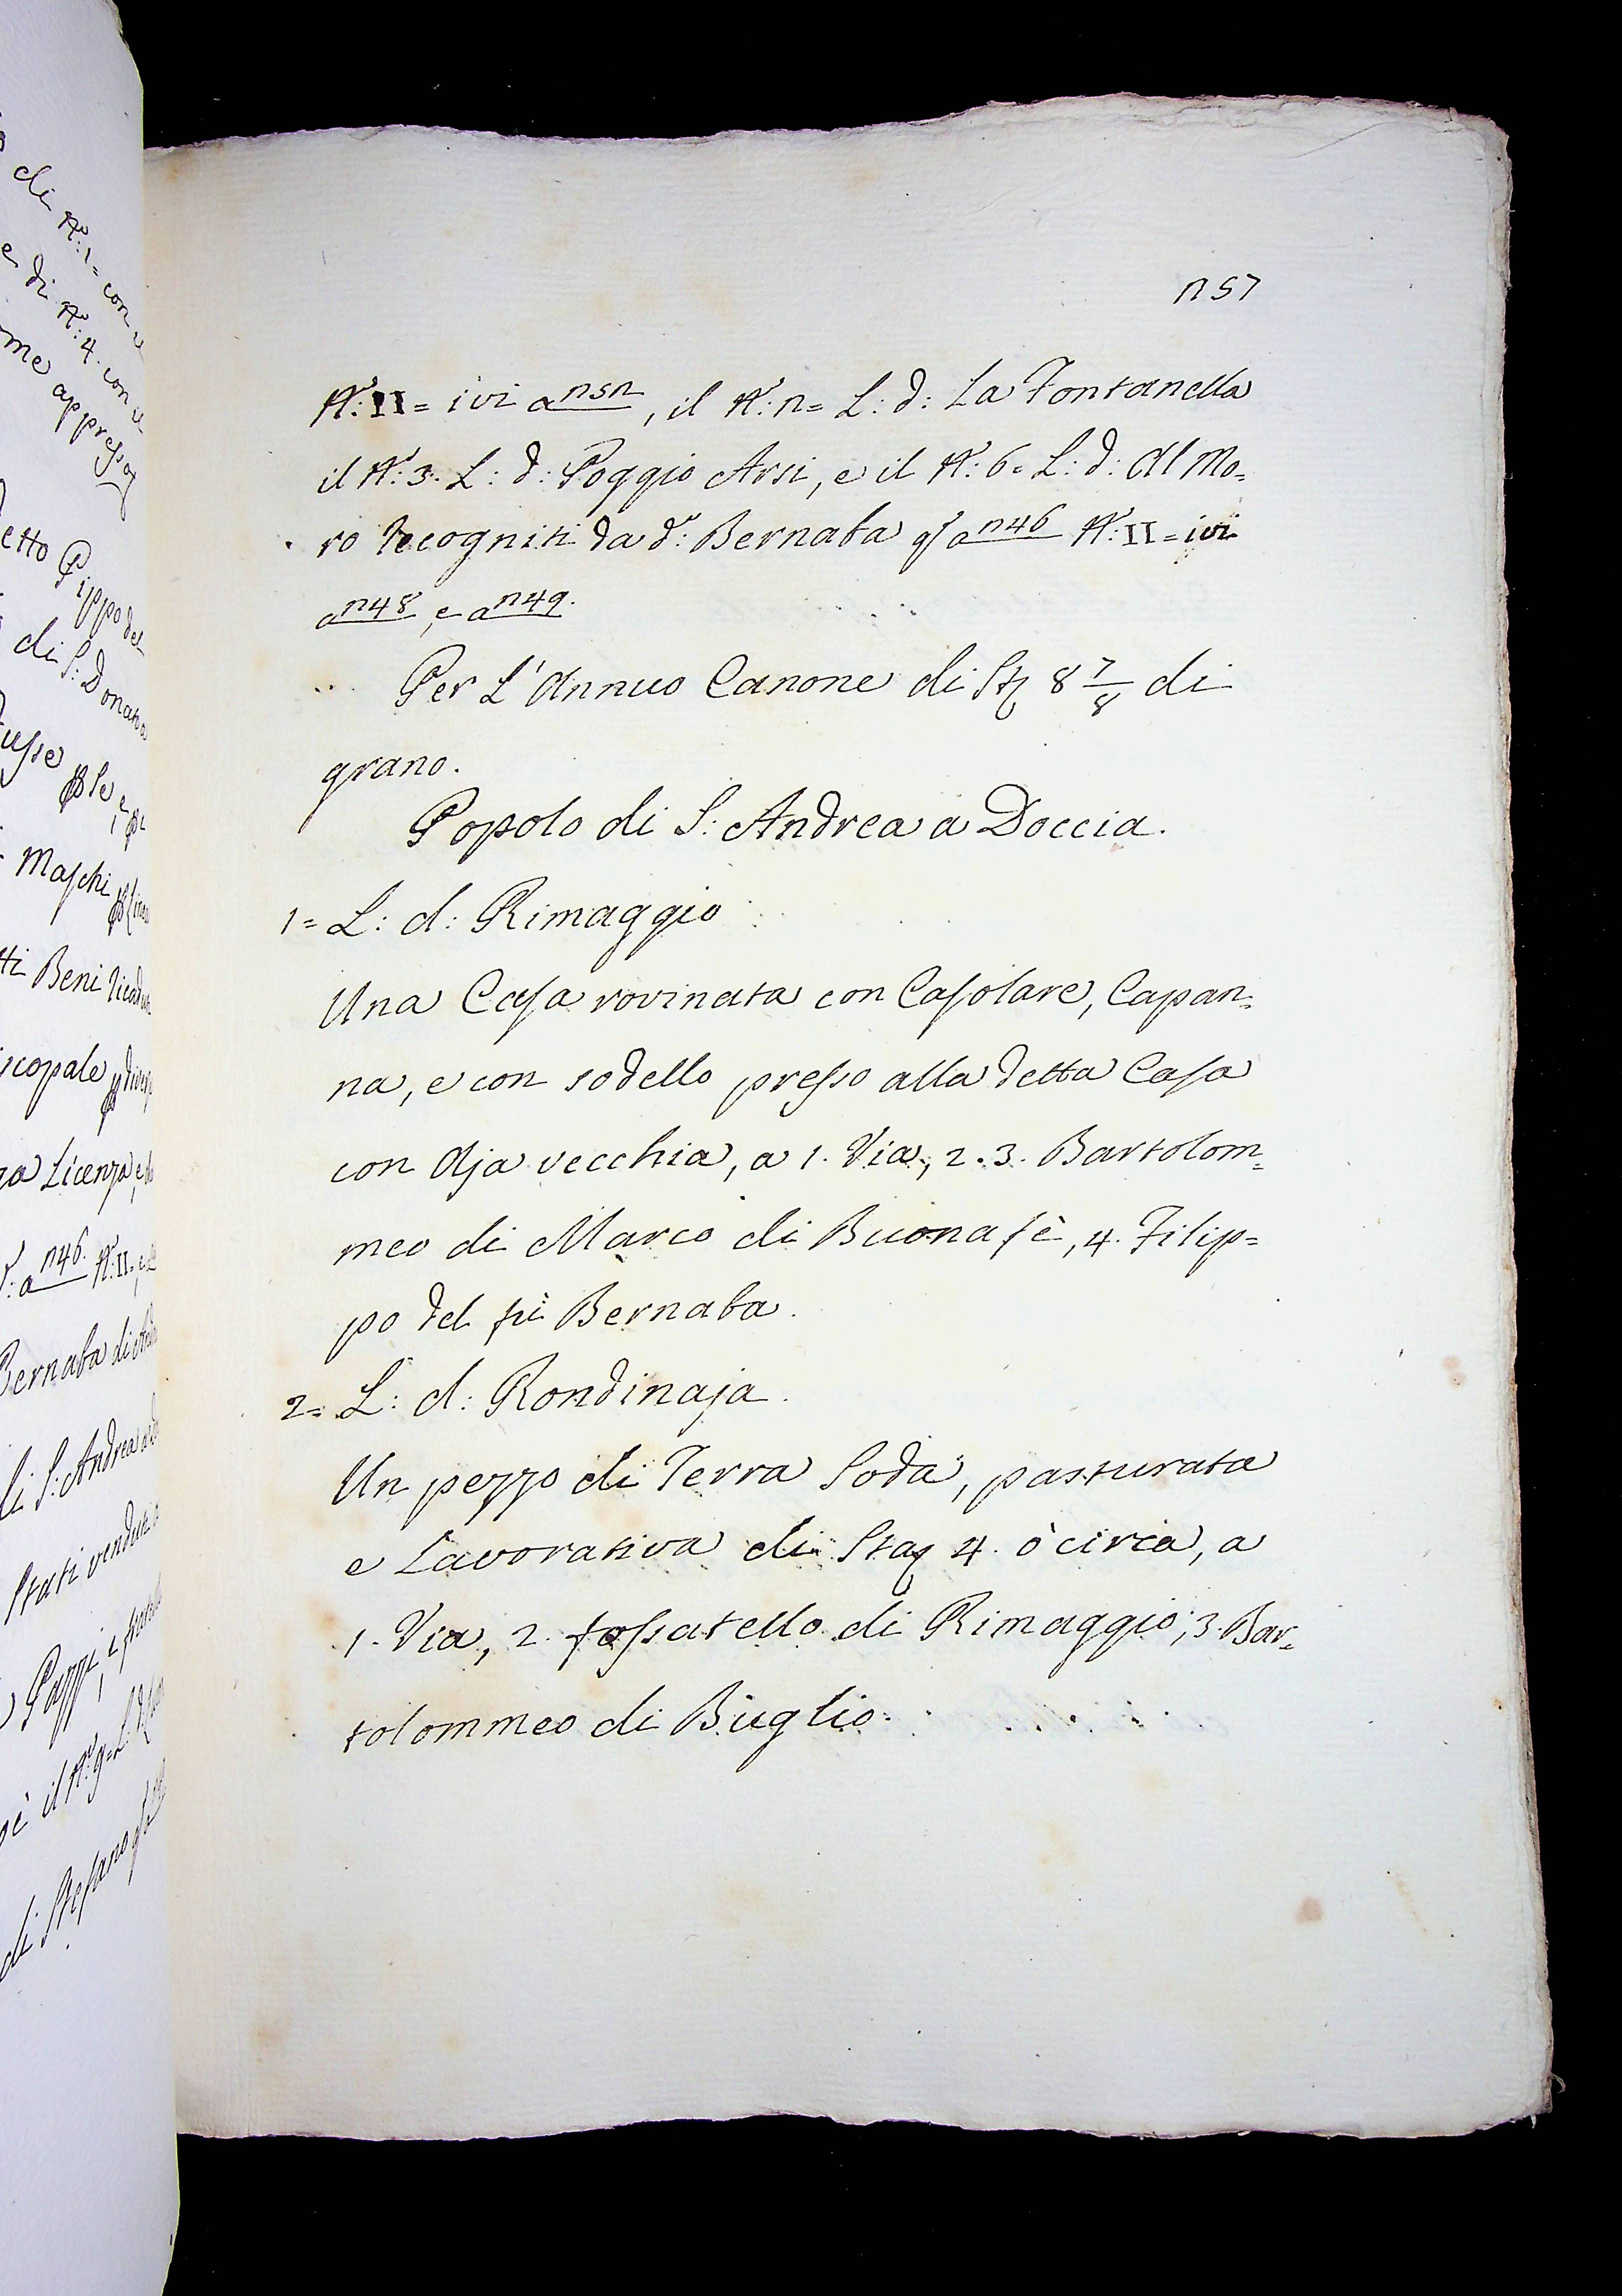 di N.º: 1= con
e di N.º: 4. con
me appresso
etto Pippo del
di S: Donato
Maschi
tti Beni
scopale
Licenza, e
a 246. N.º: II=
Bernaba di
di S: Andrea a
stati venduti
Pazzi, e
il N.º: 9=
di Stefano
257
N.º: II= ivi a 252, il N.º: 2= L: d: La Fontanella
il N.º: 3. L: d: Poggio Arsi, e il N.º: 6= L: d: Al Mo=
ro recogniti da d.º: Bernaba qſ a 246 N.º: II= ivi
a 248, e a 249.
Per L'Annuo Canone di St 8 7/8 di
grano.
Popolo di S: Andrea a Doccia.
1= L: d: Rimaggio
Una Casa rovinata con Casolare, Capan=
na, e con sodello presso alla detta Casa
con Aja vecchia, a 1. Via, 2. 3. Bartolom=
meo di Marco di Buonafè, 4. Filip=
po del fù Bernaba.
2= L: d: Rondinaja.
Un pezzo di Terra Soda, pasturata
e Lavorativa di Sta 4. ò circa, a
1. Via, 2. fossatello di Rimaggio, 3. Bar=
tolommeo di Buglio.